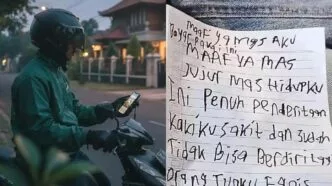 maaf ya mas AKU
BAYAR PAKAI ini
MAAF YA MAS
JUJUR MAS HIDUPKU
INI PENUH PENDERITAAN
KAKIKU SAKIT DAN SUDAH
TIDAK BISA BERDIRI
ORANG TUAKU